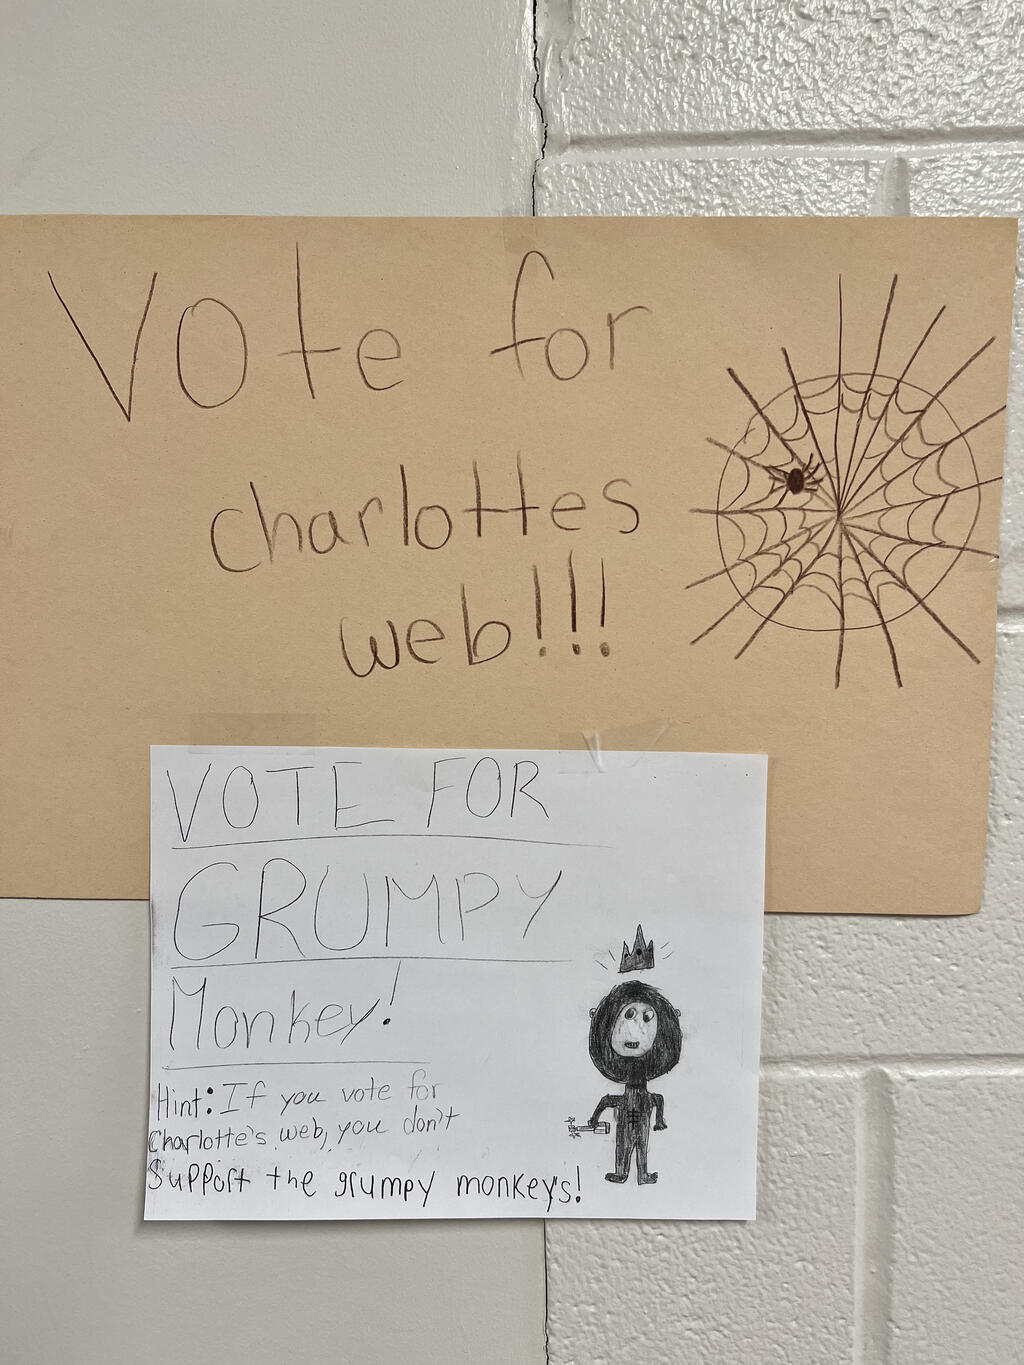 Vote for
charlottes
web!!!
VOTE FOR
GRUMPY
Monkey!
Hint: If you vote for
Charlotte's web, you don't
Support the grumpy monkeys!